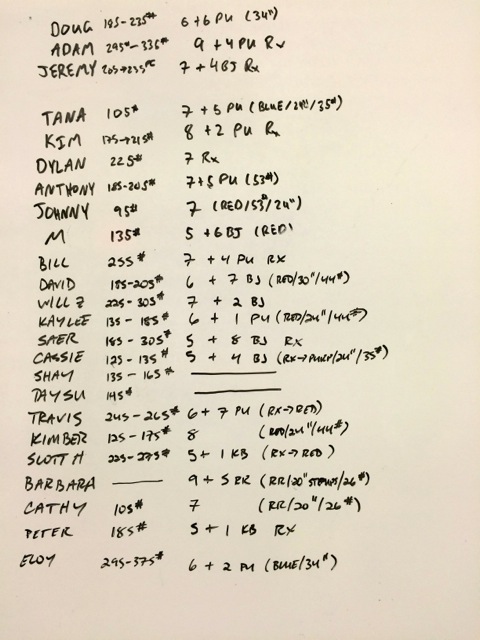 DOUG 185-235# 6+6 PU (34")
ADAM 295#-335# 9+4 PU RX
JEREMY 205→255 7+4BJ RX
TANA 105# 7+5 PU (BLUE/24"/35#)
KIM 175→215# 8+2 PU RX
DYLAN 225# 7 RX
ANTHONY 185-205# 7+5 PU (53#)
JOHNNY 95# 7 (RED/53#/24")
M 135# 5+6BJ (RED)
BILL 255# 7+4 PU RX
DAVID 185-205# 6+7 BJ (RED/30"/44#)
WILL Z 225-305# 7+2 BJ
KAYLEE 135-185# 6+1 PU (RED/24"/44#)
SAER 185-305# 5+8 BJ RX
CASSIE 125-135# 5+4 BJ (RX→PURP/24"/35#)
SHAY 135-165#
TAYSU 145#
TRAVIS 245-265# 6+7 PU (RX→RED)
KIMBER 125-175# 8 (RED/24"/44#)
SCOTT H 225-275# 5+1 KB (RX→RED)
BARBARA 9+5 RR (RR/20" STEPUPS/26#)
CATHY 105# 7 (RR/20"/26#)
PETER 185# 5+1 KB RX
ELOY 295-375# 6+2 PU (BLUE/34")